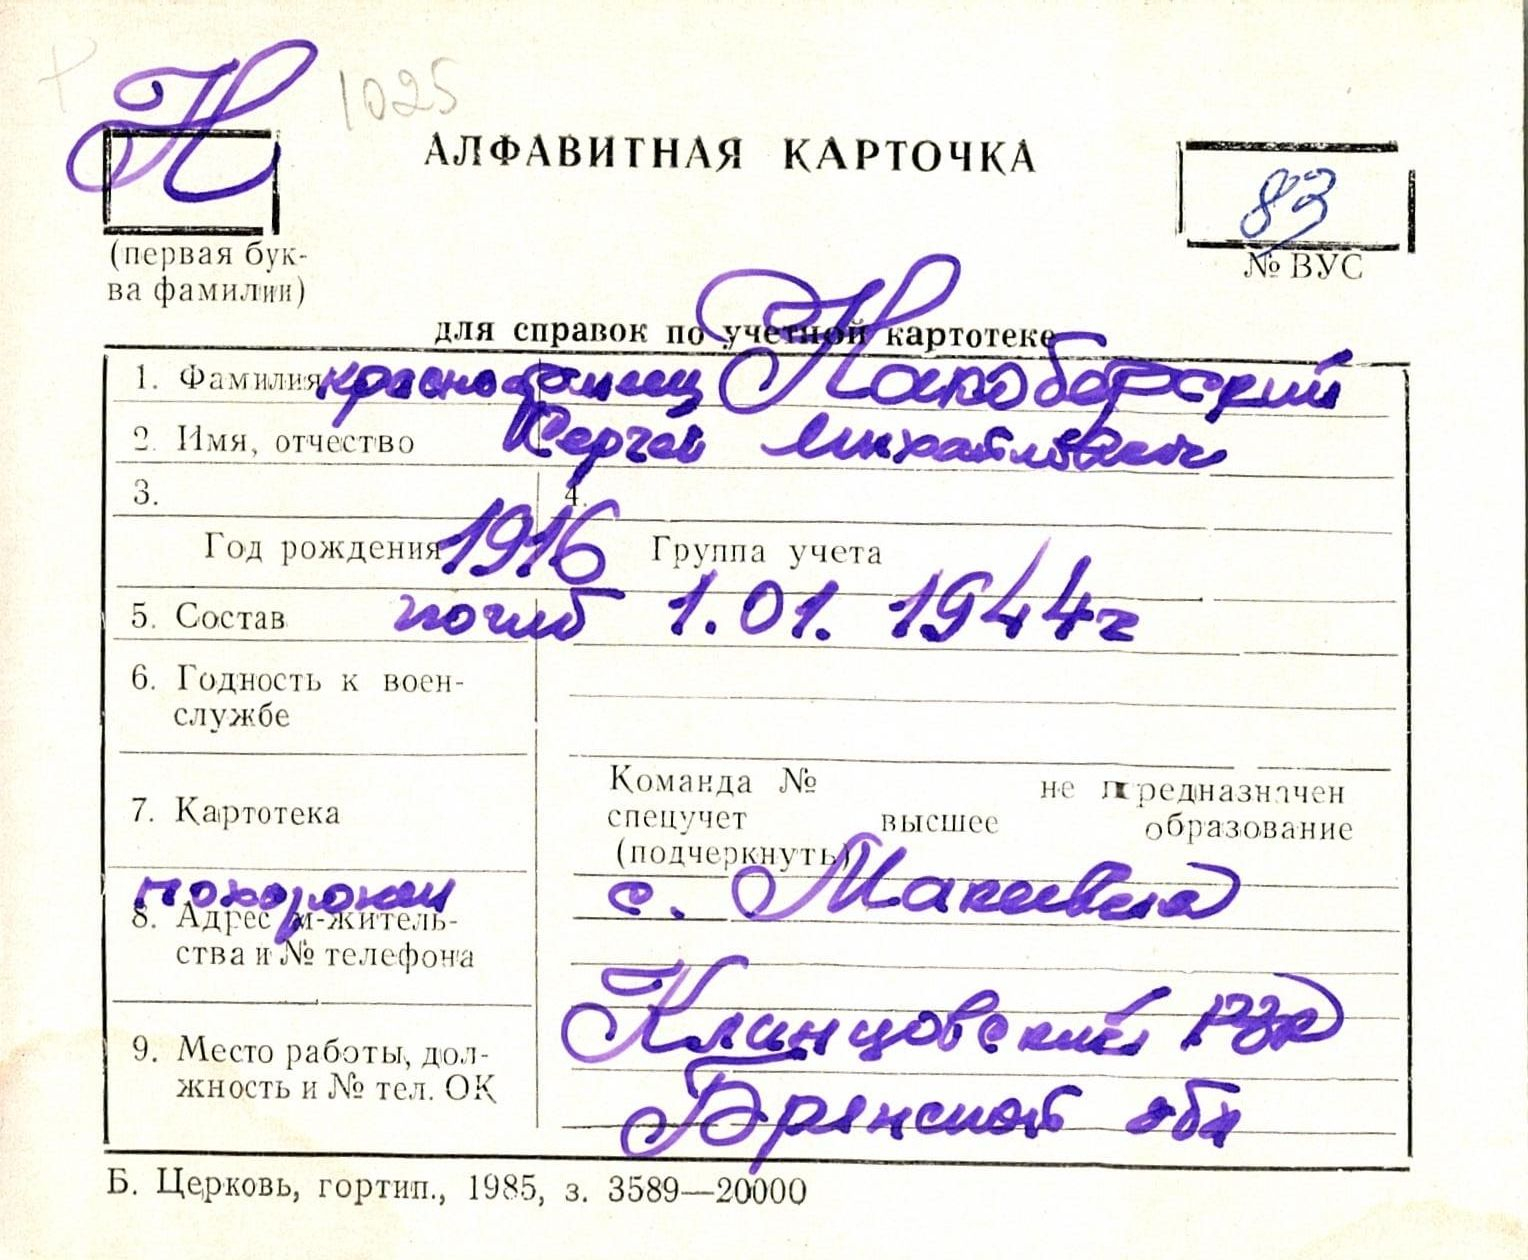 Н 1025
АЛФАВИТНАЯ КАРТОЧКА
83
(первая бук-
ва фамилии)
№ ВУС
для справок по учетной картотеке
1. Фамилия красноармеец
2. Имя, отчество Сергей Михайлович
3. 4.
Год рождения 1916 Группа учета
5. Состав погиб 1.01.1944г
6. Годность к воен-
службе
7. Картотека
Команда № не предназначен
спецучет высшее образование
(подчеркнуть)
похоронен с. Макеевка
8. Адрес м-житель-
ства и № телефона
Клинцовский р-н
9. Место работы, дол-
жность и № тел. ОК
Брянской обл
Б. Церковь, гортип., 1985, з. 3589—20000